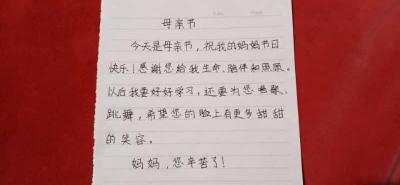 母亲节
今天是母亲节，祝我的妈妈节日
快乐！感谢您给我生命、陪伴和照顾。
以后我要好好学习，还要为您唱歌、
跳舞，希望您的脸上有更多甜甜
的笑容。
妈妈，您辛苦了！